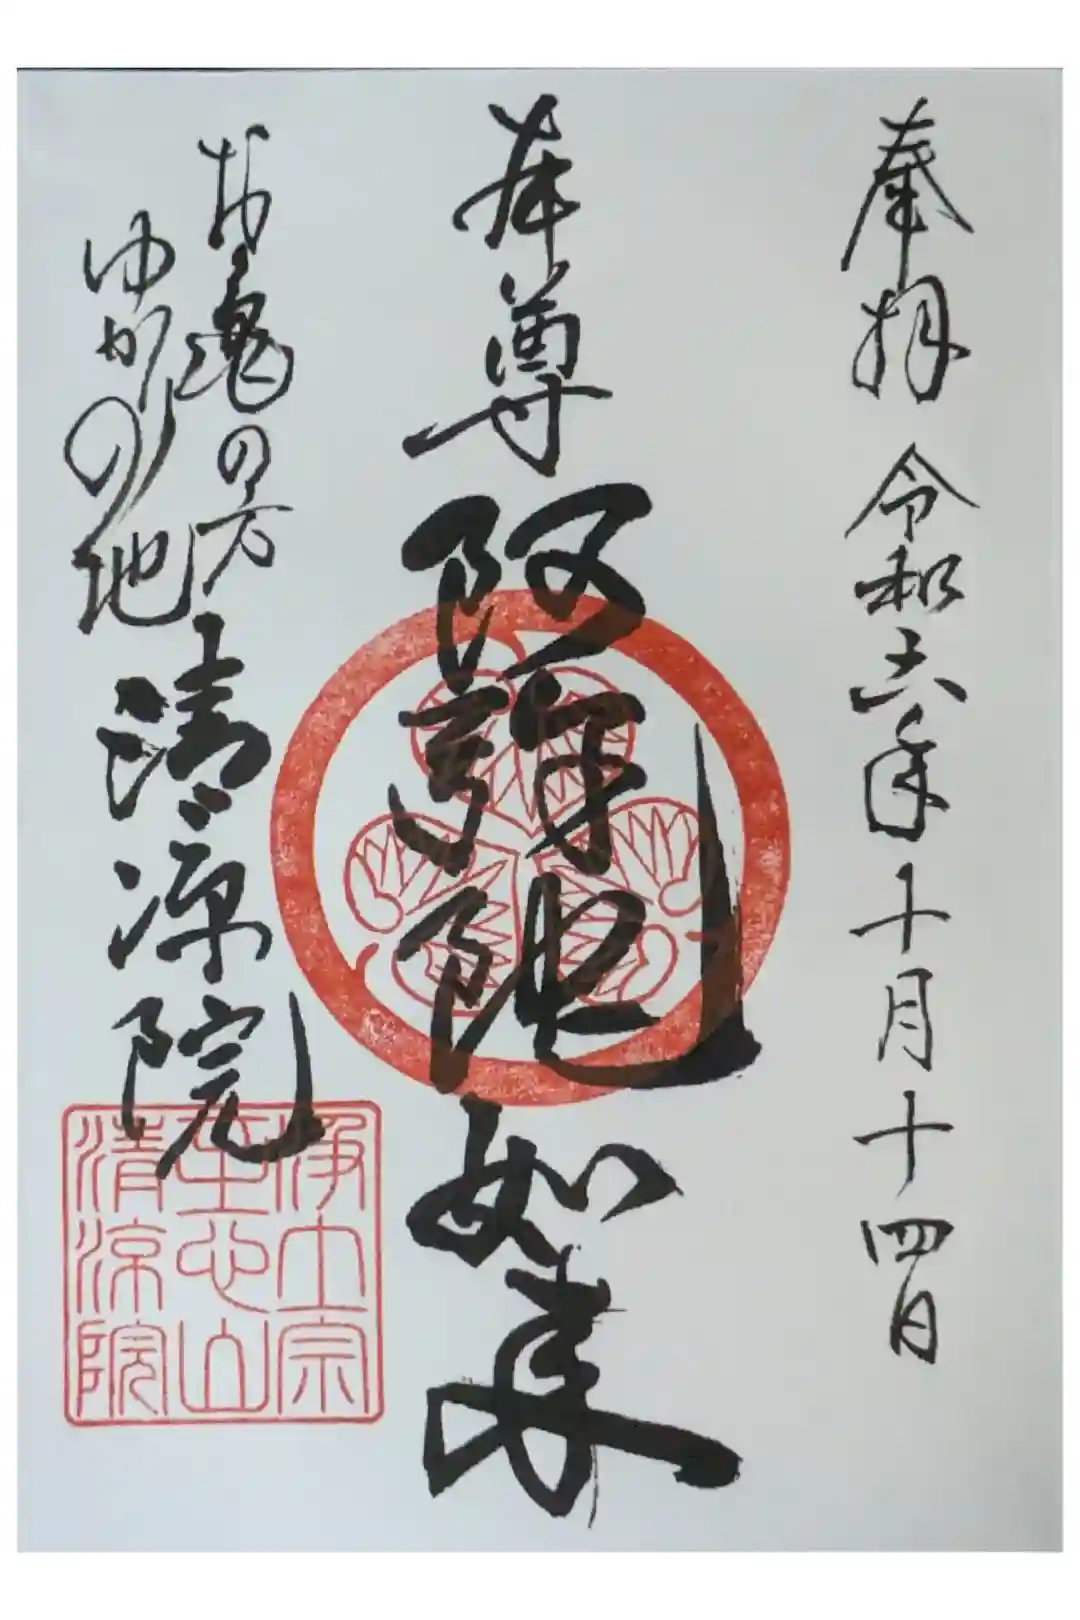 奉拝 令和六年十月十四日
本尊 阿弥陀如来
お亀の方
ゆかりの地 清涼院
浄土宗
至心山
清涼院